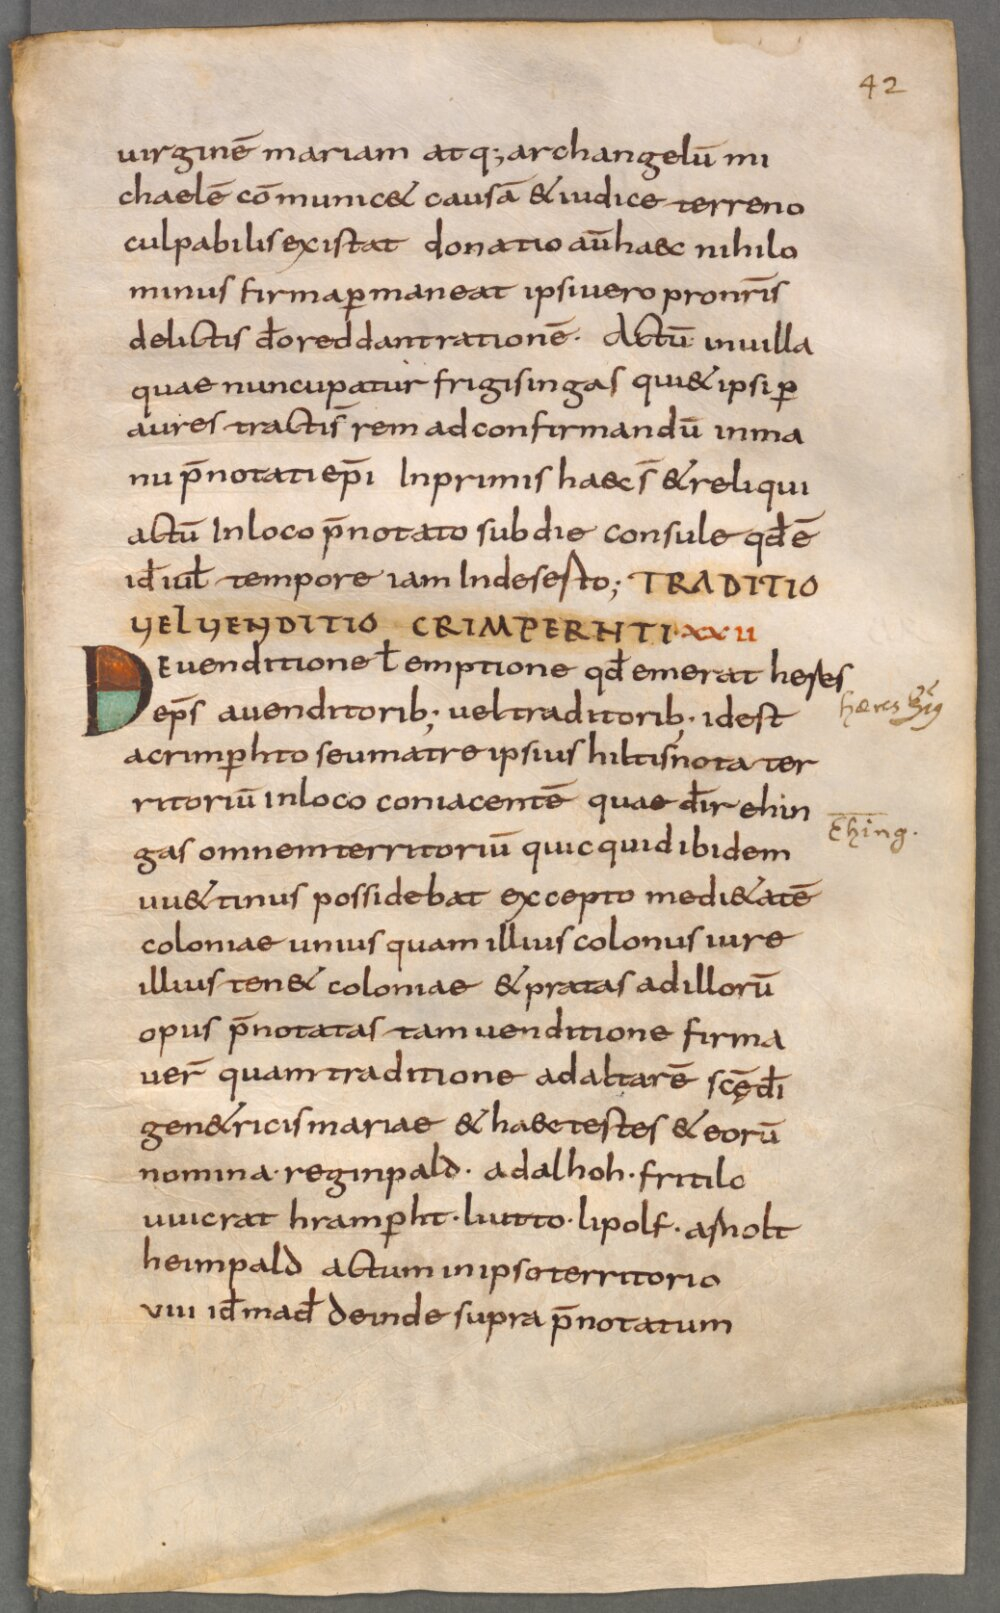 42
uirginē mariam atq; archangelū mi
chaelē cōmunic& causā & iudice terreno
culpabilis existat donatio aūhaec nihilo
minus firma ꝑmaneat ipsi uero pro nr̄is
delictis do͞ reddant rationē. Actū in uilla
quae nuncupatur frigisingas qui & ipsi ꝑ
aures tractis rem ad confirmandū in ma
nu p̄notati ep̄i In primis haec s̄ & reliqui
actū In loco p̄notato sub die consule qđ ē
iđ iuł tempore iam Inde sesto; TRADITIO
UEL UENDITIO CRIMPERHTI XXII
DE uenditione ł emptione qđ emerat heres
ep̄s a uenditorib; uel traditorib; id est
a crimꝑhto seu matre ipsius hiltisnota ter
ritoriū In loco coniacentē quae dr̄ ehin
gas omnem territoriū quicquid ibidem
uu&tinus possidebat excepto medi&atē
coloniae unius quam illius colonus iure
illius ten& coloniae & pratas ad illorū
opus p̄notatas tam uenditione firma
uer̄ quam traditione ad altarē scę̄ dī
gen&ricis mariae & haec testes & eorū
nomina. reginpald. adalhoh. fritilo
uuicrat hramꝑht. liutto. lipolf. asholt
heimpald actum in ipso territorio
VIII iđ mađ deinde supra p̄notatum
hæres
Ehing.